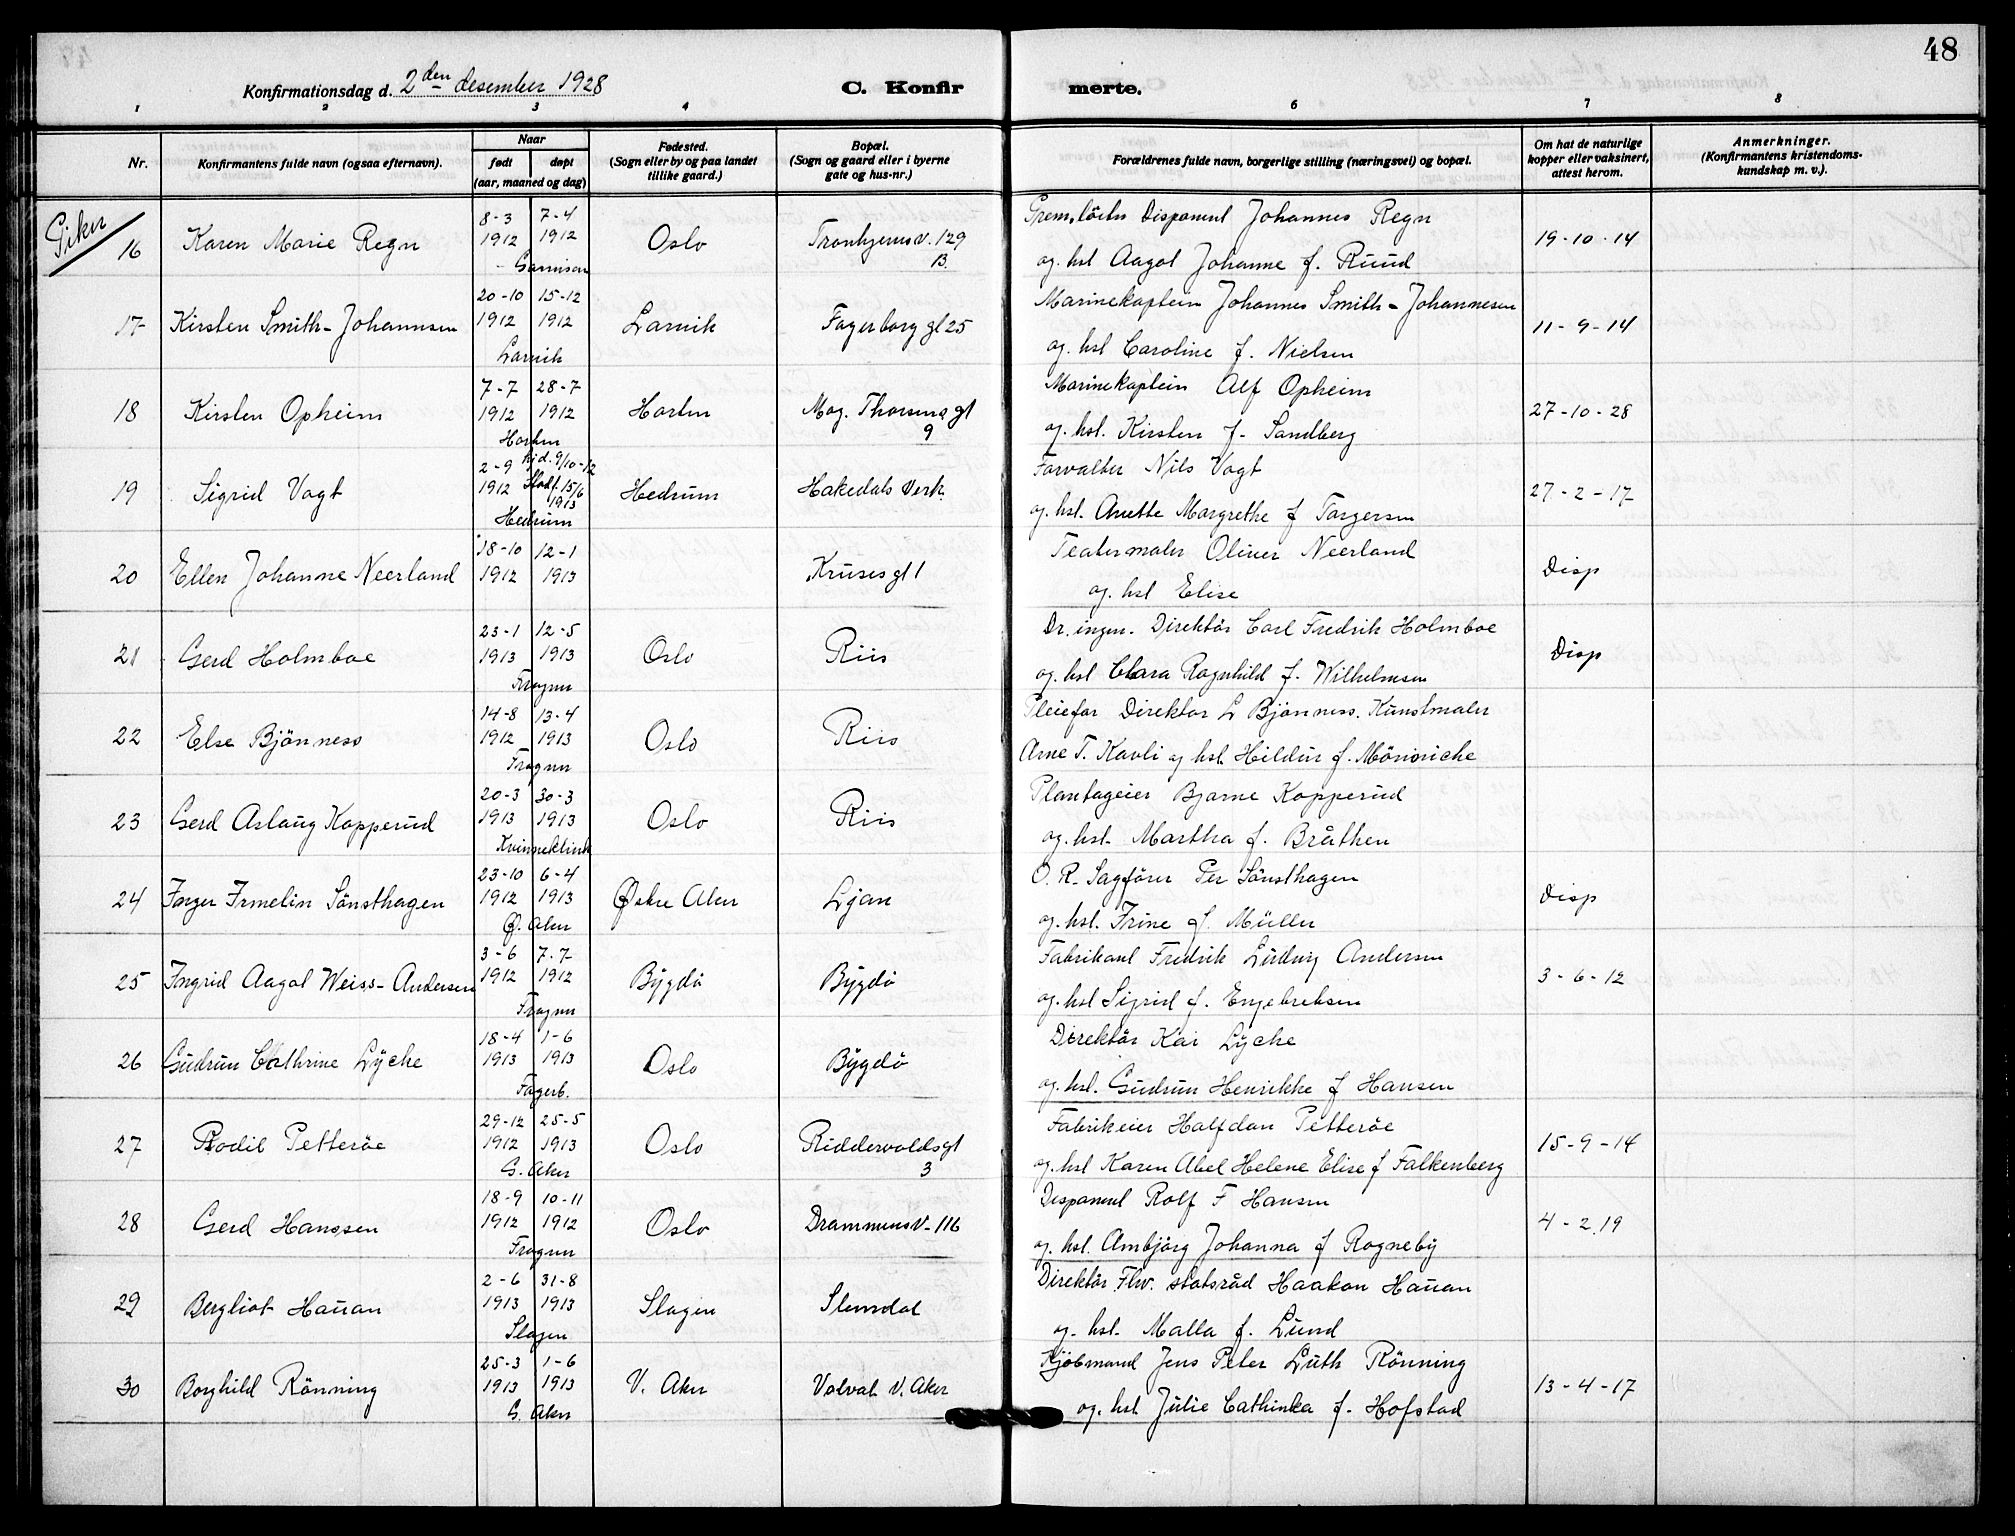 48
Konfirmationsdag d. 2den desember 1928
C. Konfirmerte.
1 2 3 4 5 6 7 8
Nr.
Konfirmantens fulde navn (ogsaa efternavn).
Naar
født døpt
(aar, maaned og dag)
Fødested.
(Sogn eller by og paa landet
tillike gaard.)
Bopæl.
(Sogn og gaard eller i byerne
gate og hus-nr.)
Forældrenes fulde navn, borgerlige stilling (næringsvei) og bopæl.
Om hat de naturlige
kopper eller vaksinert,
attest herom.
Anmerkninger.
(Konfirmantens kristendoms-
kundskap m. v.).
Piker
16 Karen Marie Regn 8-3 1912 7-4 1912 Garnison Oslo Tronhjemsv. 129 B. Disponent Johannes Regn 19-10-14
og. hst Aagot Johanne f. Ruud
17 Kirsten Smith-Johannsen 20-10 1912 15-12 1912 Larvik Larvik Fagerborg gt 25 Marinekaptein Johannes Smith-Johannesen 11-9-14
og. hst Caroline f. Nielsen
18 Kirsten Opheim 7-7 1912 28-7 1912 Horten Horten Mag. Thorsens gt 9 Marinekaptein Alf Opheim 27-10-28
og. hst. Kirsten f. Sandberg
19 Sigrid Vogt 2-9 1912 hjd. 9/10-12 Stadf. 15/6 1913 Hedrum Hedrum Hakedals Verk. Forvalter Nils Vogt 27-2-17
og. hst. Anette Margrethe f Torgersen
20 Ellen Johanne Neerland 18-10 1912 12-1 1913 Kruses gt 1 Teatermaler Oliver Neerland Disp
og. hst Elise
21 Gerd Holmboe 23-1 1913 12-5 1913 Frogner Oslo Riis Dr. ingen. Direktör Carl Fredrik Holmboe Disp
og. hst Clara Ragnhild f. Wilhelmsen
22 Else Bjönness 14-8 1912 13-4 1913 Frogner Oslo Riis Pleiefar Direktor L Bjönness. Kunstmaler
Arne T. Kavli og hst. Hildur f. Mönniche
23 Gerd Aslaug Kopperud 20-3 1913 30-3 1913 Kvinneklinik Oslo Riis Plantageier Bjarne Kopperud
og. hst. Martha f. Bråthen
24 Inger Irmelin Sönsthagen 23-10 1912 6-4 1913 Ø. Aker Østre Aker Ljan O. R. Sagförer Per Sönsthagen Disp
og. hst. Trine f. Müller
25 Ingrid Aagot Weiss-Andersen 3-6 1912 7.7 1912 Frogner Bygdö Bygdö Fabrikant Fredrik Ludvig Andersen 3-6-12
og. hst Sigrid f. Engebretsen
26 Gudrun Cathrine Lyche 18-4 1913 1-6 1913 Fagerb. Oslo Bygdö Direktör Kai Lyche
og. hst. Gudrun Henrikke f Hansen
27 Bodil Petteröe 29-12 1912 25-5 1913 G. Aker Oslo Riddervoldsgt 3 Fabrikeier Halfdan Petteröe 15-9-14
og. hst Karen Abel Helene Elise f Falkenberg
28 Gerd Hanssen 18-9 1912 10-11 1912 Frogner Oslo Drammensv. 116 Disponent Rolf F Hansen 4-2.19
og. hst. Ambjörg Johanna f Rogneby
29 Bergliot Hauan 2-6 1913 31-8 1913 Slagen Slagen Slemdal Direktör Fhv. statsråd Haakon Hauan
og. hst. Malla f. Lund
30 Borghild Rönning 25-3 1913 1-6 1913 G. Aker V. Aker Volvat V. Aker Kjöbmand Jens Peter Luth Rönning 13-4-17
og. hst Julie Cathinka f. Hofstad